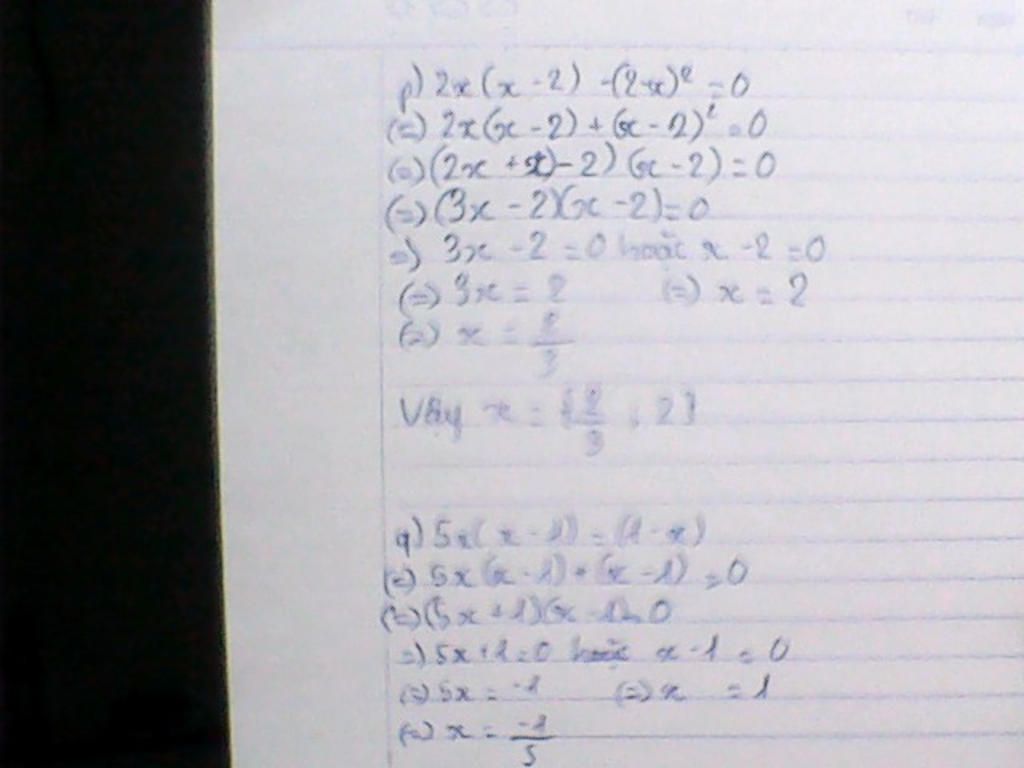 p) 2x(x - 2) - (2-x)² = 0
(=) 2x(x - 2) + (x - 2)² = 0
(=) (2x + x - 2) (x - 2) = 0
(=) (3x - 2)(x - 2) = 0
=) 3x - 2 = 0 hoặc x - 2 = 0
(=) 3x = 2 (=) x = 2
(=) x = 2/3
Vậy x = {2/3 ; 2}
q) 5x(x - 1) = (1 - x)
(=) 5x(x - 1) + (x - 1) = 0
(=) (5x + 1)(x - 1) = 0
=) 5x + 1 = 0 hoặc x - 1 = 0
(=) 5x = -1 (=) x = 1
(=) x = -1/5